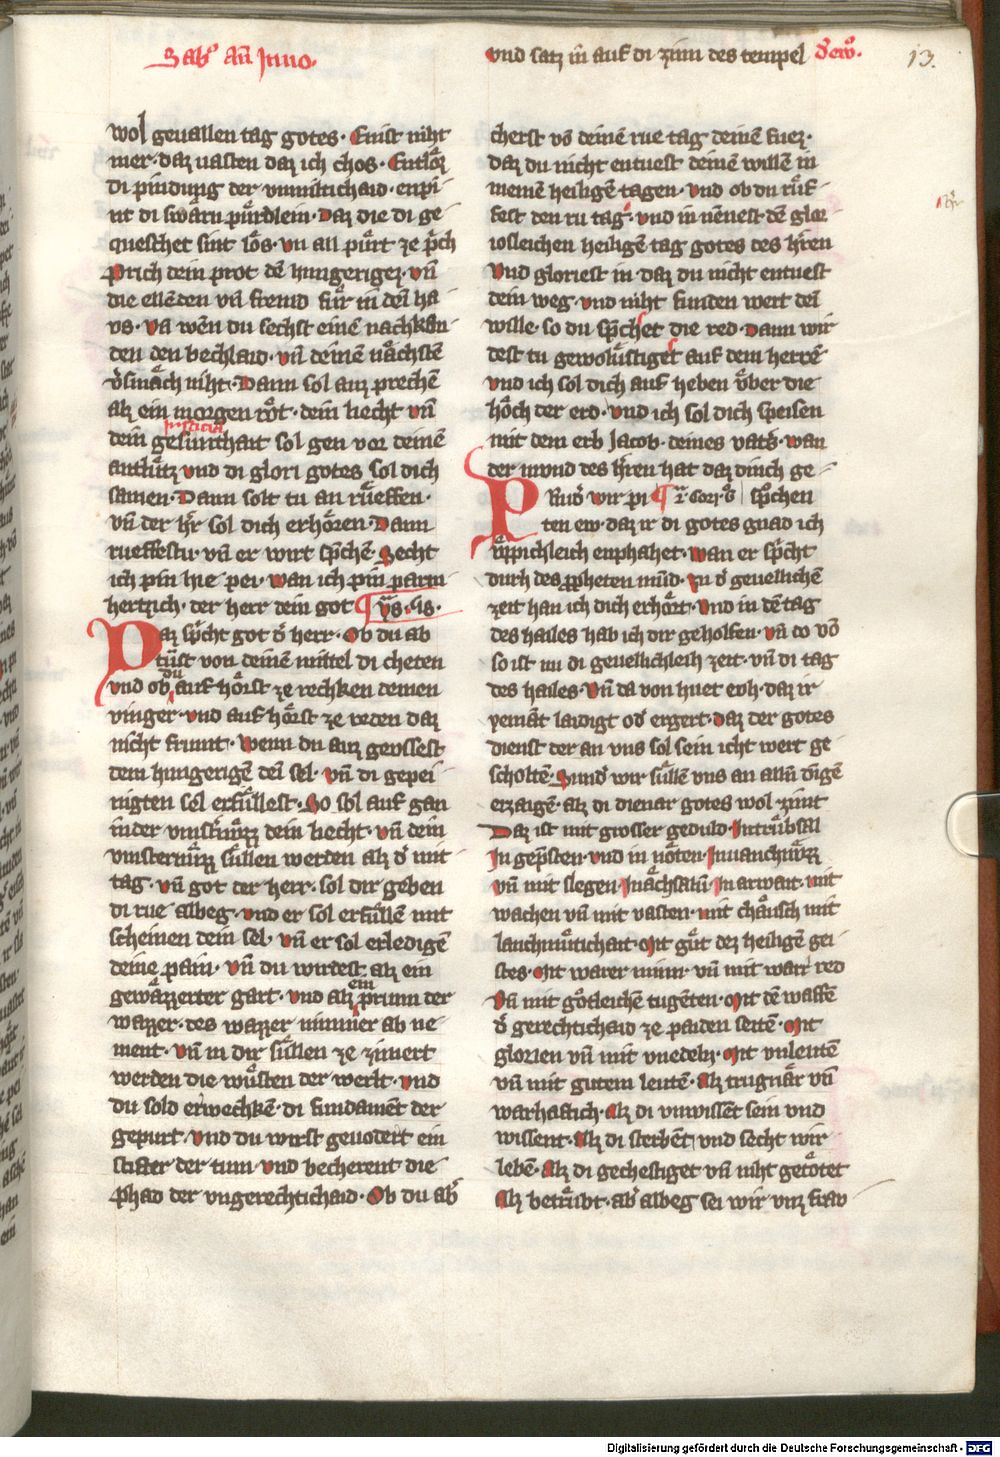 Sab° an̄ Inno.
vnd satz in auf di zinn des tempel
13.
wol geuallen tag gotes. Enist niht
mer. daz uasten daz ich chos. Entlöz
di pindung der vnmiltichaid. enpi
nt di swärn pürdlein. Daz die di ge
queschet sint lös. vn all pürt ze p̄ch
Prich dein prot dē hungerigez. vn̄
die ellēden vn̄ fremd für in dein̄ ha
vs. vn̄ wēn du sechst einē nachkan
den den bechlaid. vn̄ deinē nächstē
v̓smäch niht. Dann sol auz prechē
alz ein morgen röt. dein liecht vn̄
iusticia
dein gesunthait sol gen vor deinē
antlütz vnd di glori gotes sol dich
samen. Dann solt tu an rüeffen.
vn̄ der h̓r sol dich erhören. Dann
rueffestu vn̄ er wirt sp̄chē. Secht
ich pin hie pei. wan ich pin parm
hertzich. der herr dein got ¶ ys. lviii.
Daz sp̓cht got d̓ herr. Ob du ab
tuͤst von deinē mittel di cheten
du
vnd ob auf hörst ze rechken deinen
vinger. vnd auf hörst ze reden daz
nicht frumt. Wenn du auz geussest
dem hungerigē dein̄ sel. vn̄ di gepei
nigten sel erfüllest. So sol auf gan
in der vinst̓nüzz dein liecht. vn̄ dein
vinsternüzz süllen werden alz d̓ mit
tag. vn̄ got der herr. sol dir geben
di rue albeg. vnd er sol erfüllē mit
scheinen dein sel. vn̄ er sol erledigē
deine pain. vn̄ du wirdest alz ein
ein
gewäzzerter gart. vnd alz prunn der
wazzer. des wazzer nimmer ab ne
ment. vn̄ in dir süllen ze zimert
werden die wüsten der werlt. vnd
du sold erwechkē. di fundamēt der
gepurt. vnd du wirst geuodert ein
stifter der tun. vnd becherent die
phad der vngerechtichaid. Ob du ab̓
cherst vō deinē rue tag deinē fuez.
daz du nicht entuest deinē willē in
meinē heiligē tagen. vnd ob du rüf
fest den ru tag. vnd in nēnest dē glor
iosleichen heiligē tag gotes des h̓ren
Vnd gloriest in. daz du nicht entuest
dein weg. vnd niht funden wert dei
wille. so du sp̄chet die red. Dann wir
dest tu gewolüstiget auf dem herrē
vnd ich sol dich auf heben über die
höch der erd. vnd ich sol dich speisen
mit dem erb Jacob. deines vat̓s. wan
der mund des h̓ren hat daz dinch ge
Prud̓ wir pi ¶ ī cor. vi spͦchen
ten ew. daz ir di gotes gnad ich
üppichleich emphahet. wan er sp̓cht
durh des ꝓpheten mūd. In d̓ geuellichē
zeit han ich dich erhört. vnd in dē tag
des hailes hab ich dir geholfen. vn̄ do vō
so ist nu di geuellichleih zeit. vn̄ di tag
des hailes. vn̄ da von huet evh. daz ir
yemāt laidigt od̓ ergert. daz der gotes
dienst der an vns sol sein icht wert ge
scholtē. Sund̓ wir süllē vns an alln̄ dīgē
erzaigē. alz di dienar gotes wol zimt
Daz ist mit grosser geduld. In trübsal
In gep̄sten. vnd in nötten. In vanchnüzz
vn̄ mit slegen. In ächsalū. In arwait. mit
wachen vn̄ mit vasten. mit chäusch mit
lanchmütichait. Mit güt dez heiligē gei
stes. Mit warer minn. vn̄ mit warr̓ red
Vn̄ mit götleichē tugēten. Mit dē waffē
d̓ gerechtichaid ze paiden seitē. Mit
glorien vn̄ mit vnedeln. Mit vnleutē
vn̄ mit gutem leutē. Alz trugnär vn̄
warhaftich. Alz di vnwissēt sein vnd
wissent. Alz di sterbēt vnd secht wir
lebē. Alz di gechestiget vn̄ niht getötet
Alz betrübt. ab̓ albeg sei wir vnz fraw
Digitalisierung gefördert durch die Deutsche Forschungsgemeinschaft - DFG